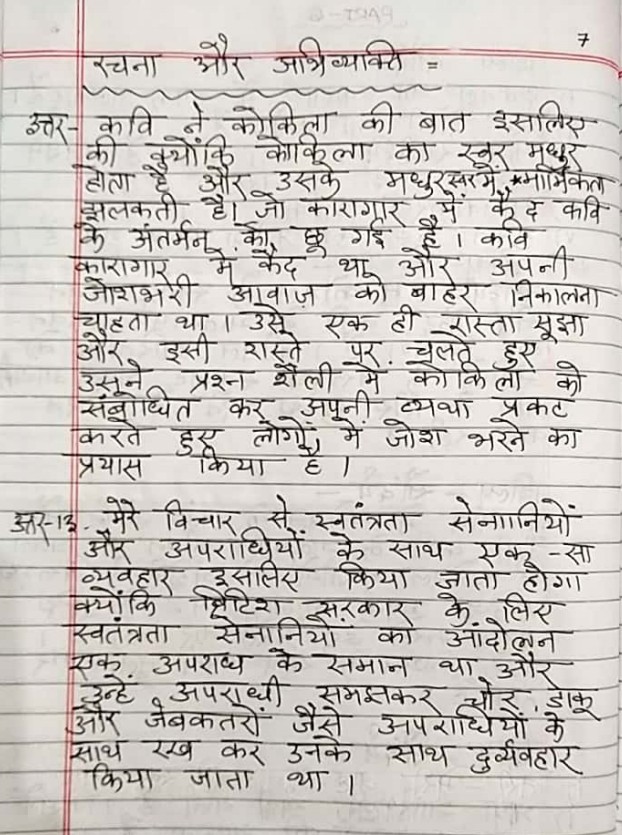 7
रचना और अभिव्यक्ति =
उत्तर- कवि ने कोकिला की बात इसलिए
की क्योंकि कोकिला का स्वर मधुर
होता है और उसके मधुर स्वर में मार्मिकता
झलकती है। जो कारागार में कैद कवि
के अंतर्मन को छू गई है। कवि
कारागार में कैद था और अपनी
जोशभरी आवाज़ को बाहर निकालना
चाहता था। उसे एक ही रास्ता सूझा
और इसी रास्ते पर चलते हुए
उसने प्रश्न शैली में कोकिला को
संबोधित कर अपनी व्यथा प्रकट
करते हुए लोगों में जोश भरने का
प्रयास किया है।
उत्तर-13. मेरे विचार से स्वतंत्रता सेनानियों
और अपराधियों के साथ एक-सा
व्यवहार इसलिए किया जाता होगा
क्योंकि ब्रिटिश सरकार के लिए
स्वतंत्रता सेनानियों का आंदोलन
एक अपराध के समान था और
उन्हे अपराधी समझकर चोर, डाकू
और जेबकतरों जैसे अपराधियों के
साथ रख कर उनके साथ दुर्व्यवहार
किया जाता था।